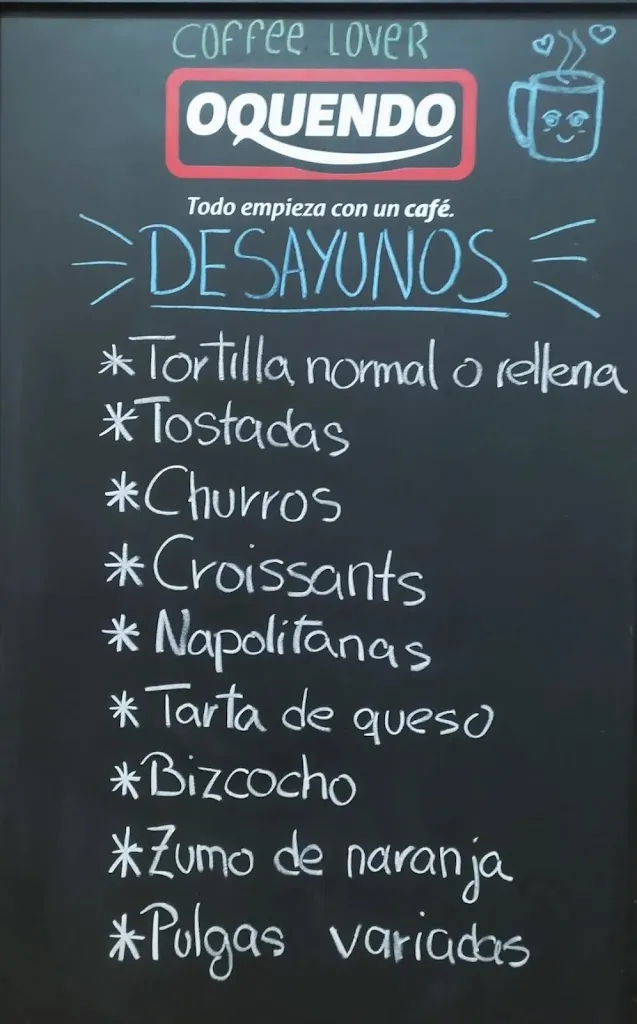 COFFee LOVER
OQUENDO
Todo empieza con un café.
DESAYUNOS
*Tortilla normal o rellena
*Tostadas
*Churros
*Croissants
*Napolitanas
*Tarta de queso
*Bizcocho
*Zumo de naranja
*Pulgas variadas